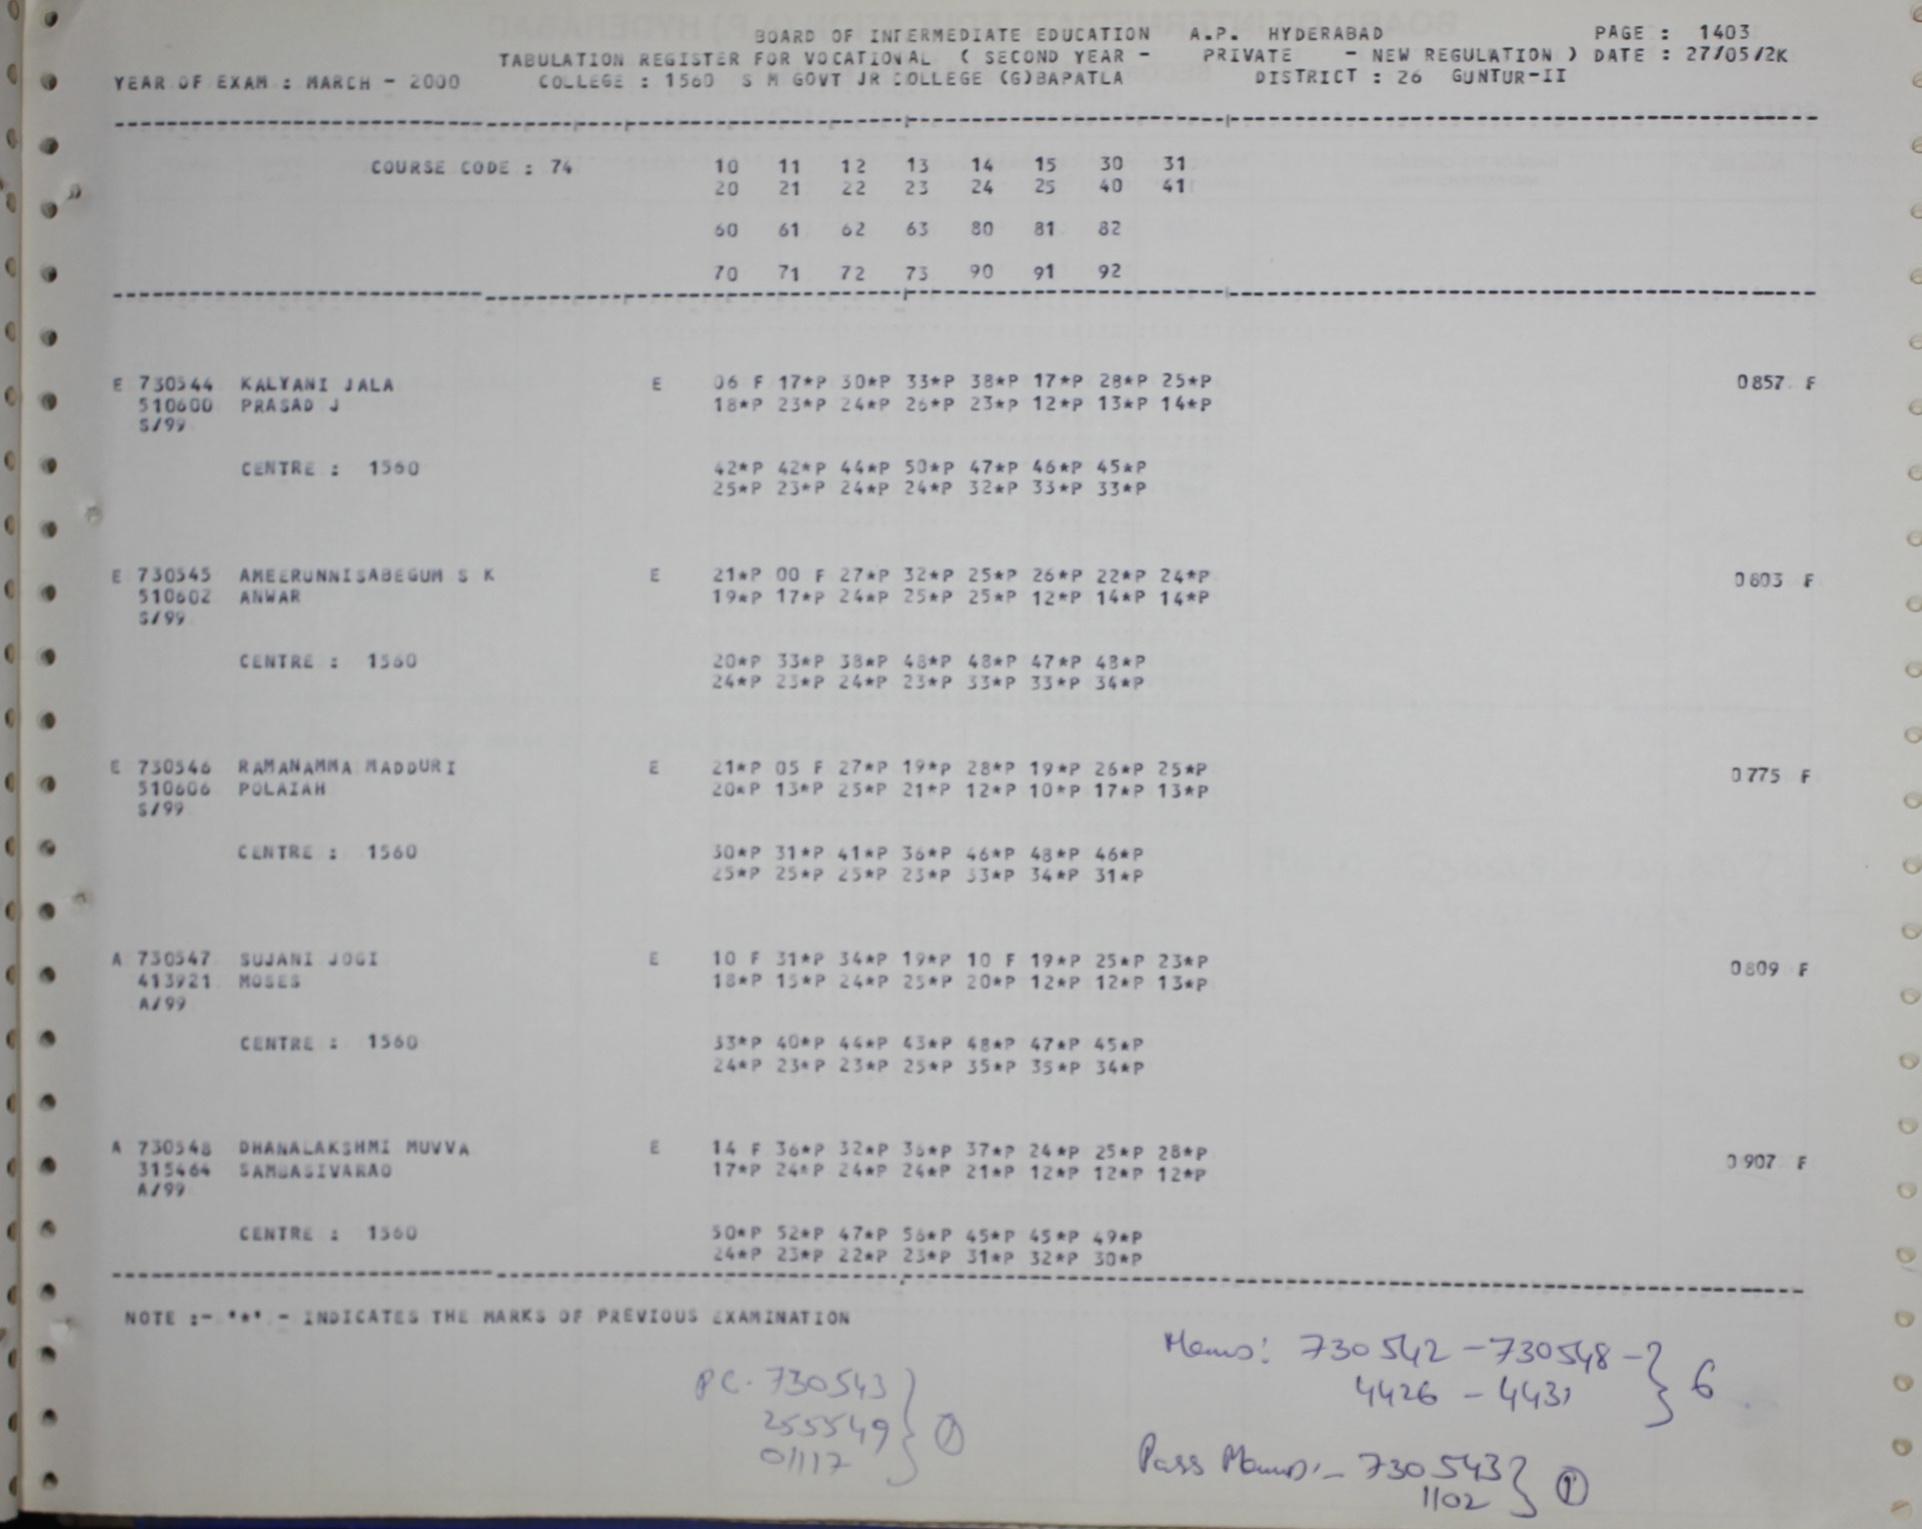 BOARD OF INTERMEDIATE EDUCATION A.P. HYDERABAD PAGE : 1403
TABULATION REGISTER FOR VOCATIONAL ( SECOND YEAR - PRIVATE - NEW REGULATION ) DATE : 27/05/2K
YEAR OF EXAM : MARCH - 2000 COLLEGE : 1560 S M GOVT JR COLLEGE (G)BAPATLA DISTRICT : 26 GUNTUR-II
COURSE CODE : 74 10 11 12 13 14 15 30 31
20 21 22 23 24 25 40 41
60 61 62 63 80 81 82
70 71 72 73 90 91 92
E 730544 KALYANI JALA E 06 F 17*P 30*P 33*P 38*P 17*P 28*P 25*P 0857 F
510600 PRASAD J 18*P 23*P 24*P 26*P 23*P 12*P 13*P 14*P
S/99
CENTRE : 1560 42*P 42*P 44*P 50*P 47*P 46*P 45*P
25*P 23*P 24*P 24*P 32*P 33*P 33*P
E 730545 AMEERUNNISABEGUM S K E 21*P 00 F 27*P 32*P 25*P 26*P 22*P 24*P 0803 F
510602 ANWAR 19*P 17*P 24*P 25*P 25*P 12*P 14*P 14*P
S/99
CENTRE : 1560 20*P 33*P 38*P 48*P 48*P 47*P 48*P
24*P 23*P 24*P 23*P 33*P 33*P 34*P
E 730546 RAMANAMMA MADDURI E 21*P 05 F 27*P 19*P 28*P 19*P 26*P 25*P 0775 F
510606 POLAIAH 20*P 13*P 25*P 21*P 12*P 10*P 17*P 13*P
S/99
CENTRE : 1560 30*P 31*P 41*P 36*P 46*P 48*P 46*P
25*P 25*P 25*P 23*P 33*P 34*P 31*P
A 730547 SUJANI JOGI E 10 F 31*P 34*P 19*P 10 F 19*P 25*P 23*P 0809 F
413921 MOSES 18*P 15*P 24*P 25*P 20*P 12*P 12*P 13*P
A/99
CENTRE : 1560 33*P 40*P 44*P 43*P 48*P 47*P 45*P
24*P 23*P 23*P 25*P 35*P 35*P 34*P
A 730548 DHANALAKSHMI MUVVA E 14 F 36*P 32*P 36*P 37*P 24*P 25*P 28*P 0907 F
315464 SAMBASIVARAO 17*P 24*P 24*P 24*P 21*P 12*P 12*P 12*P
A/99
CENTRE : 1560 50*P 52*P 47*P 56*P 45*P 45*P 49*P
24*P 23*P 22*P 23*P 31*P 32*P 30*P
NOTE :- '*' - INDICATES THE MARKS OF PREVIOUS EXAMINATION
Memos: 730542 - 730548 - } 6
4426 - 4431
PC. 730543 } 1
255549
01117
Pass Memos:- 730543 } 1
1102